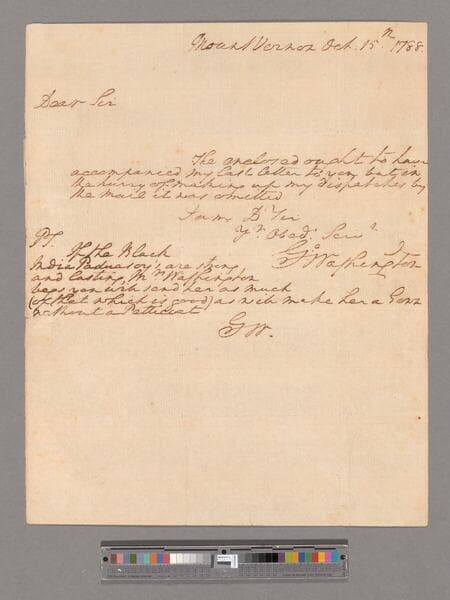 Mount Vernon Oct. 15th 1788.
Dear Sir
The enclosed ought to have
accompanied my last letter to you but in
the hurry of making up my dispatches by
the mail it was omitted
I am Dr Sir
Yr Obedt Servt
Go Washington
PS. If the Black
India Paduasoys are strong
and lasting, Mrs Washington
begs you will send her as much
(of that which is good) as will make her a Gown
without a Petticoat
GW.